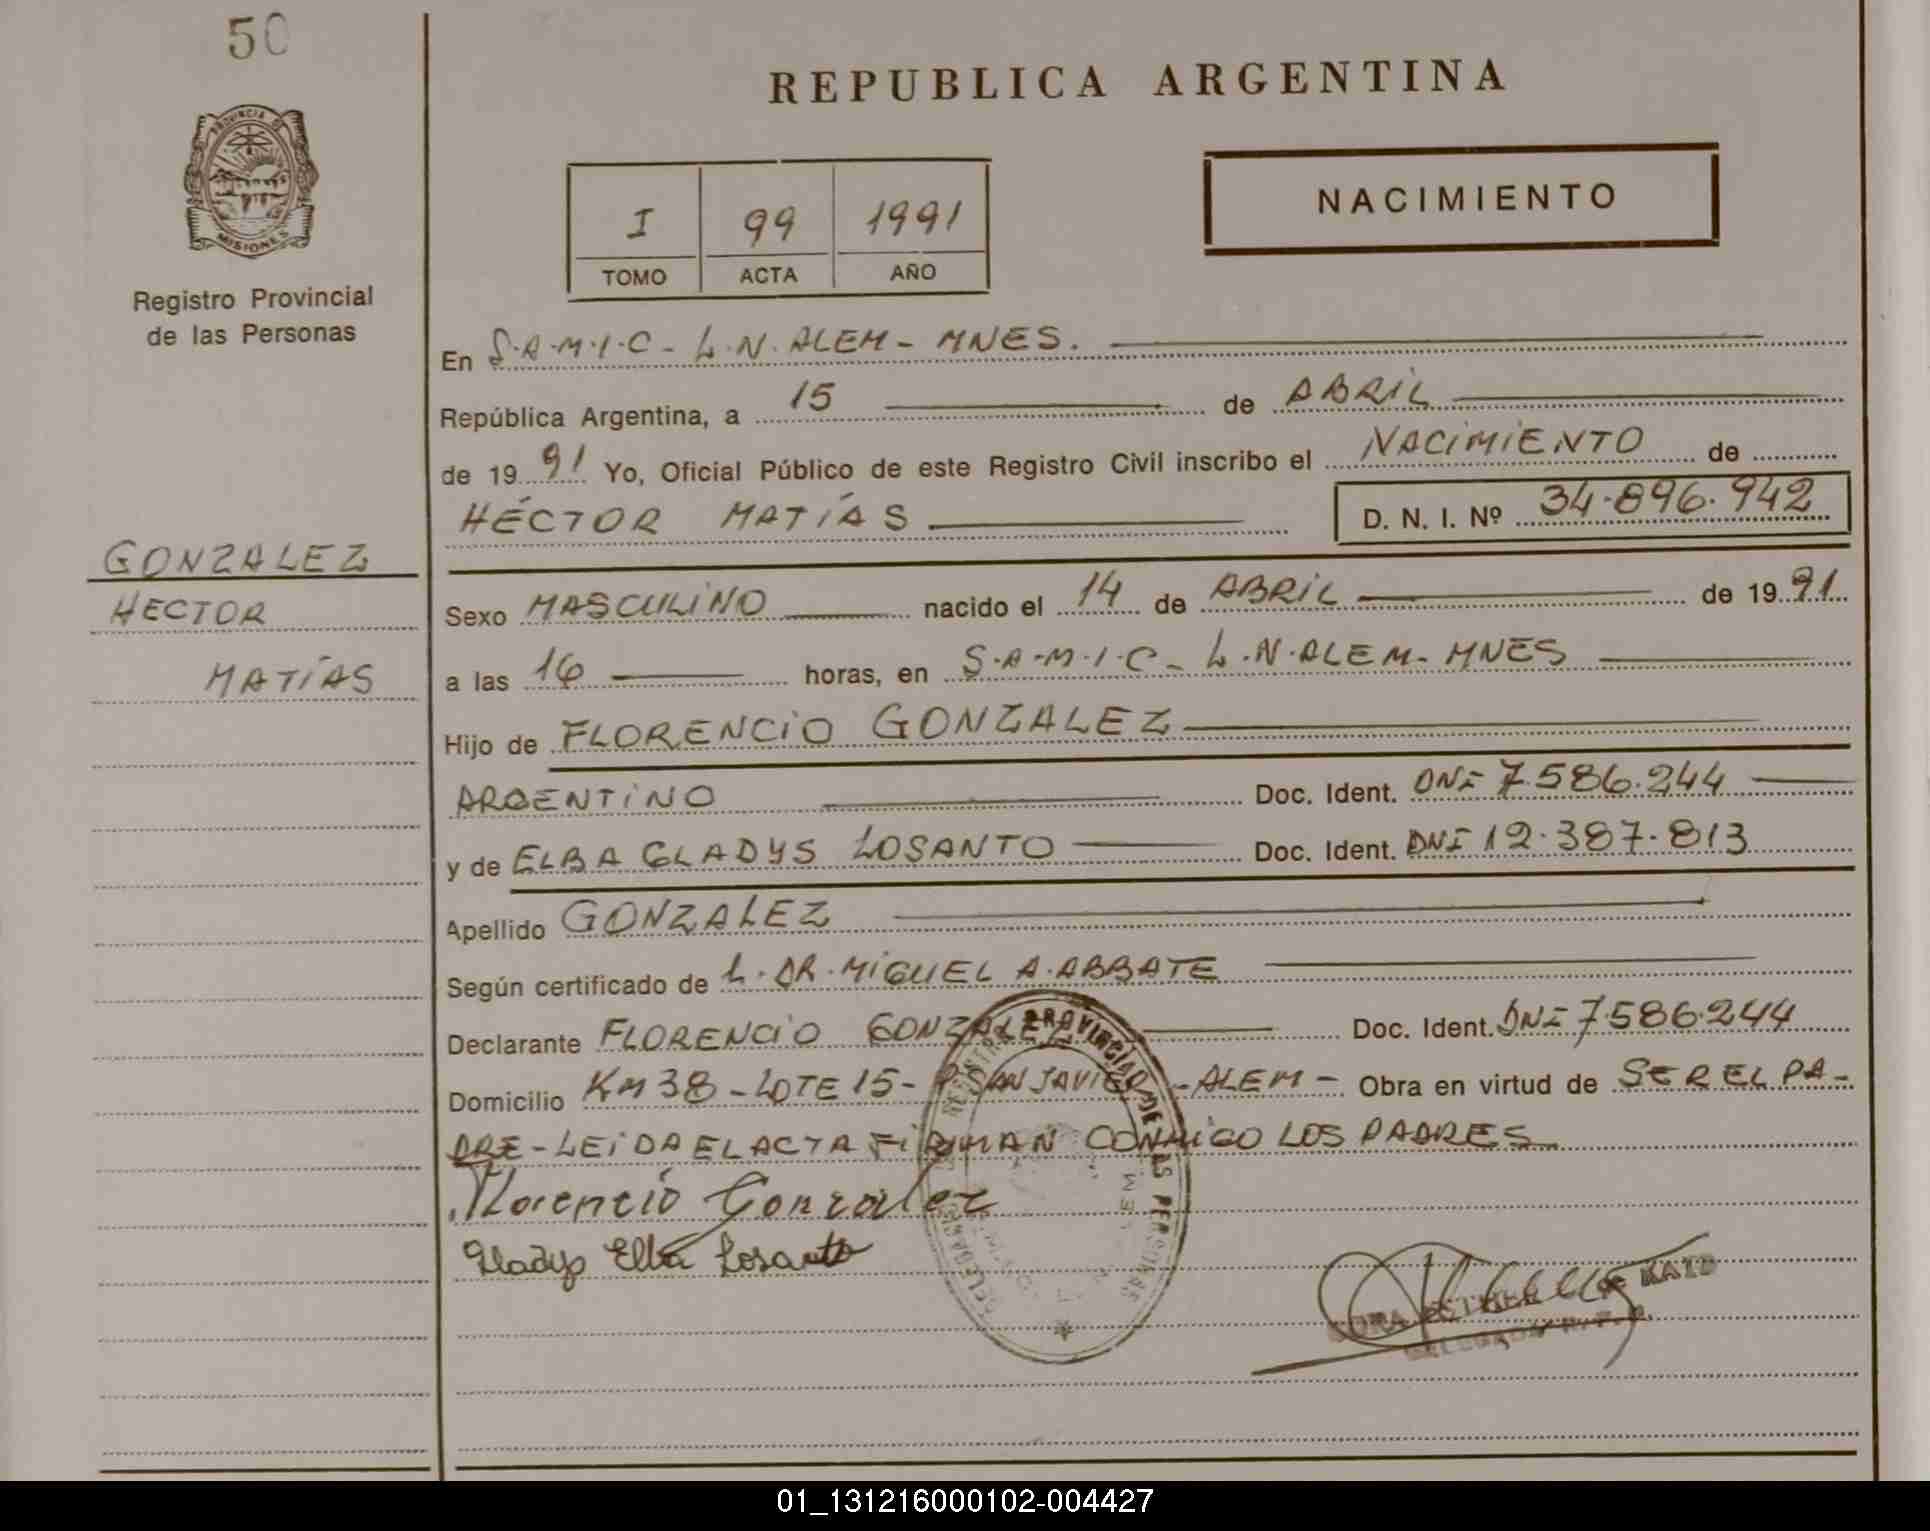 50
REPUBLICA ARGENTINA
PROVINCIA DE
MISIONES
Registro Provincial
de las Personas
I 99 1991
TOMO ACTA AÑO
NACIMIENTO
En S.A.M.I.C - L.N. ALEM - MNES.
República Argentina, a 15 de ABRIL
de 19 91 Yo, Oficial Público de este Registro Civil inscribo el NACIMIENTO de
HÉCTOR MATÍAS D. N. I. Nº 34.896.942
GONZALEZ
HECTOR
MATÍAS
Sexo MASCULINO nacido el 14 de ABRIL de 19 91
a las 16 horas, en S.A.M.I.C - L.N. ALEM - MNES
Hijo de FLORENCIO GONZALEZ
ARGENTINO Doc. Ident. DNI 7.586.244
y de ELBA GLADYS LOSANTO Doc. Ident. DNI 12.387.813
Apellido GONZALEZ
Según certificado de L. DR. MIGUEL A. ABBATE
Declarante FLORENCIO GONZALEZ Doc. Ident. DNI 7.586.244
Domicilio KM 38 - LOTE 15 - P. SAN JAVIER - ALEM - Obra en virtud de SER EL PA-
DRE - LEIDA EL ACTA FIRMAN CONMIGO LOS PADRES
Florencio Gonzalez
Gladys Elba Losanto
REGISTRO PROVINCIAL DE LAS PERSONAS
ESTHER de KAID
01_131216000102-004427